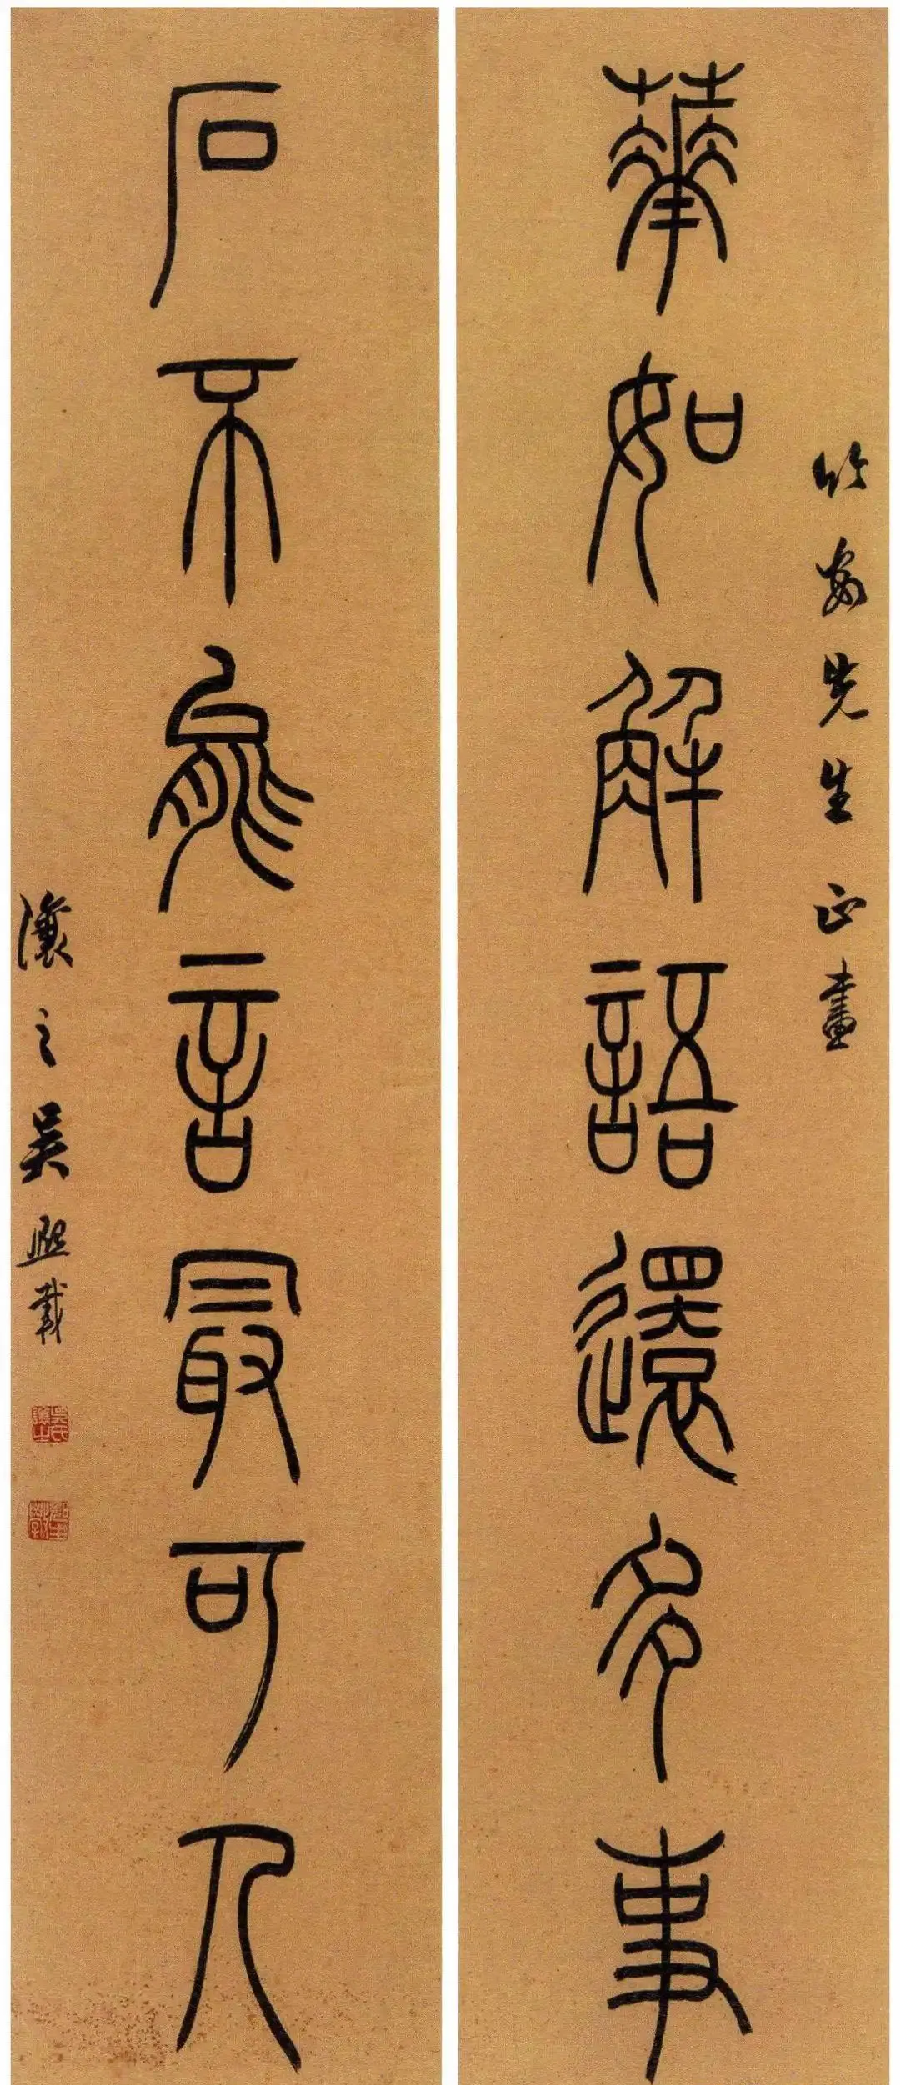 華如解語還多事
竹安先生正畫
石不能言最可人
讓之吳熙載